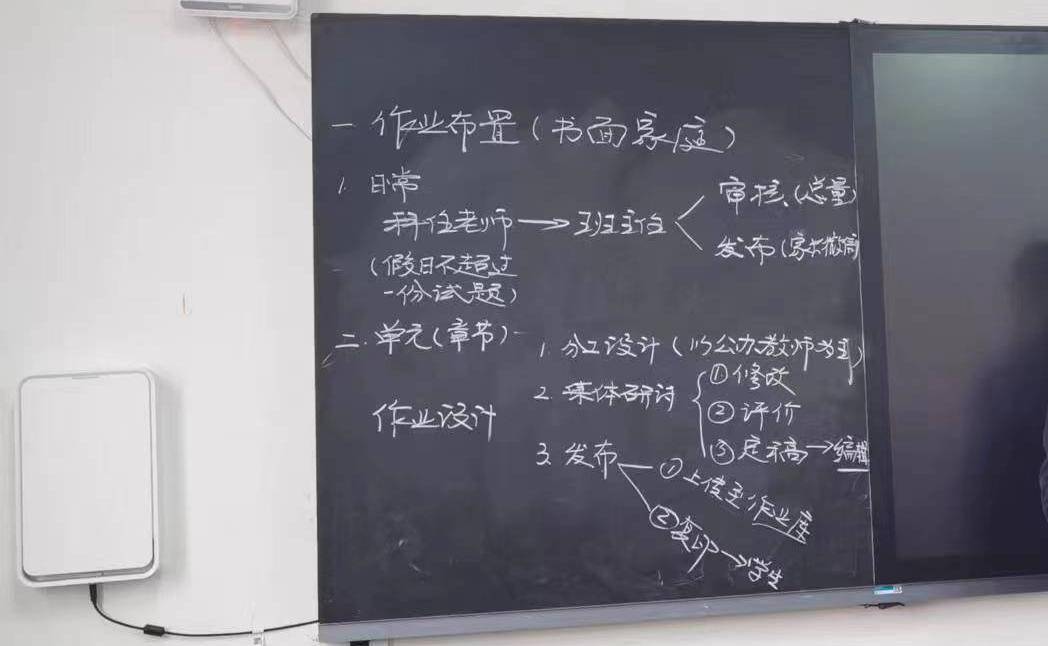 一 作业布置（书面家庭）
1. 日常
科任老师→班主任
审核（总量）
发布（家长微信
（假日不超过
一份试题）
二. 单元（章节）
作业设计
1. 分工设计（以公办教师为主）
2. 集体研讨
①修改
②评价
③定稿→编辑
3. 发布
①上传至作业库
②复印→学生